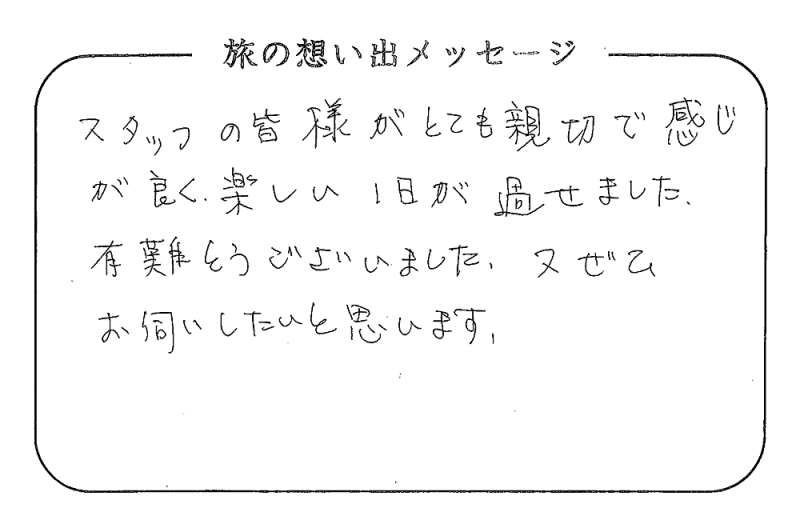 旅の想い出メッセージ
スタッフの皆様がとても親切で感じ
が良く、楽しい1日が過せました。
有難とうございました。又ぜひ
お伺いしたいと思います。